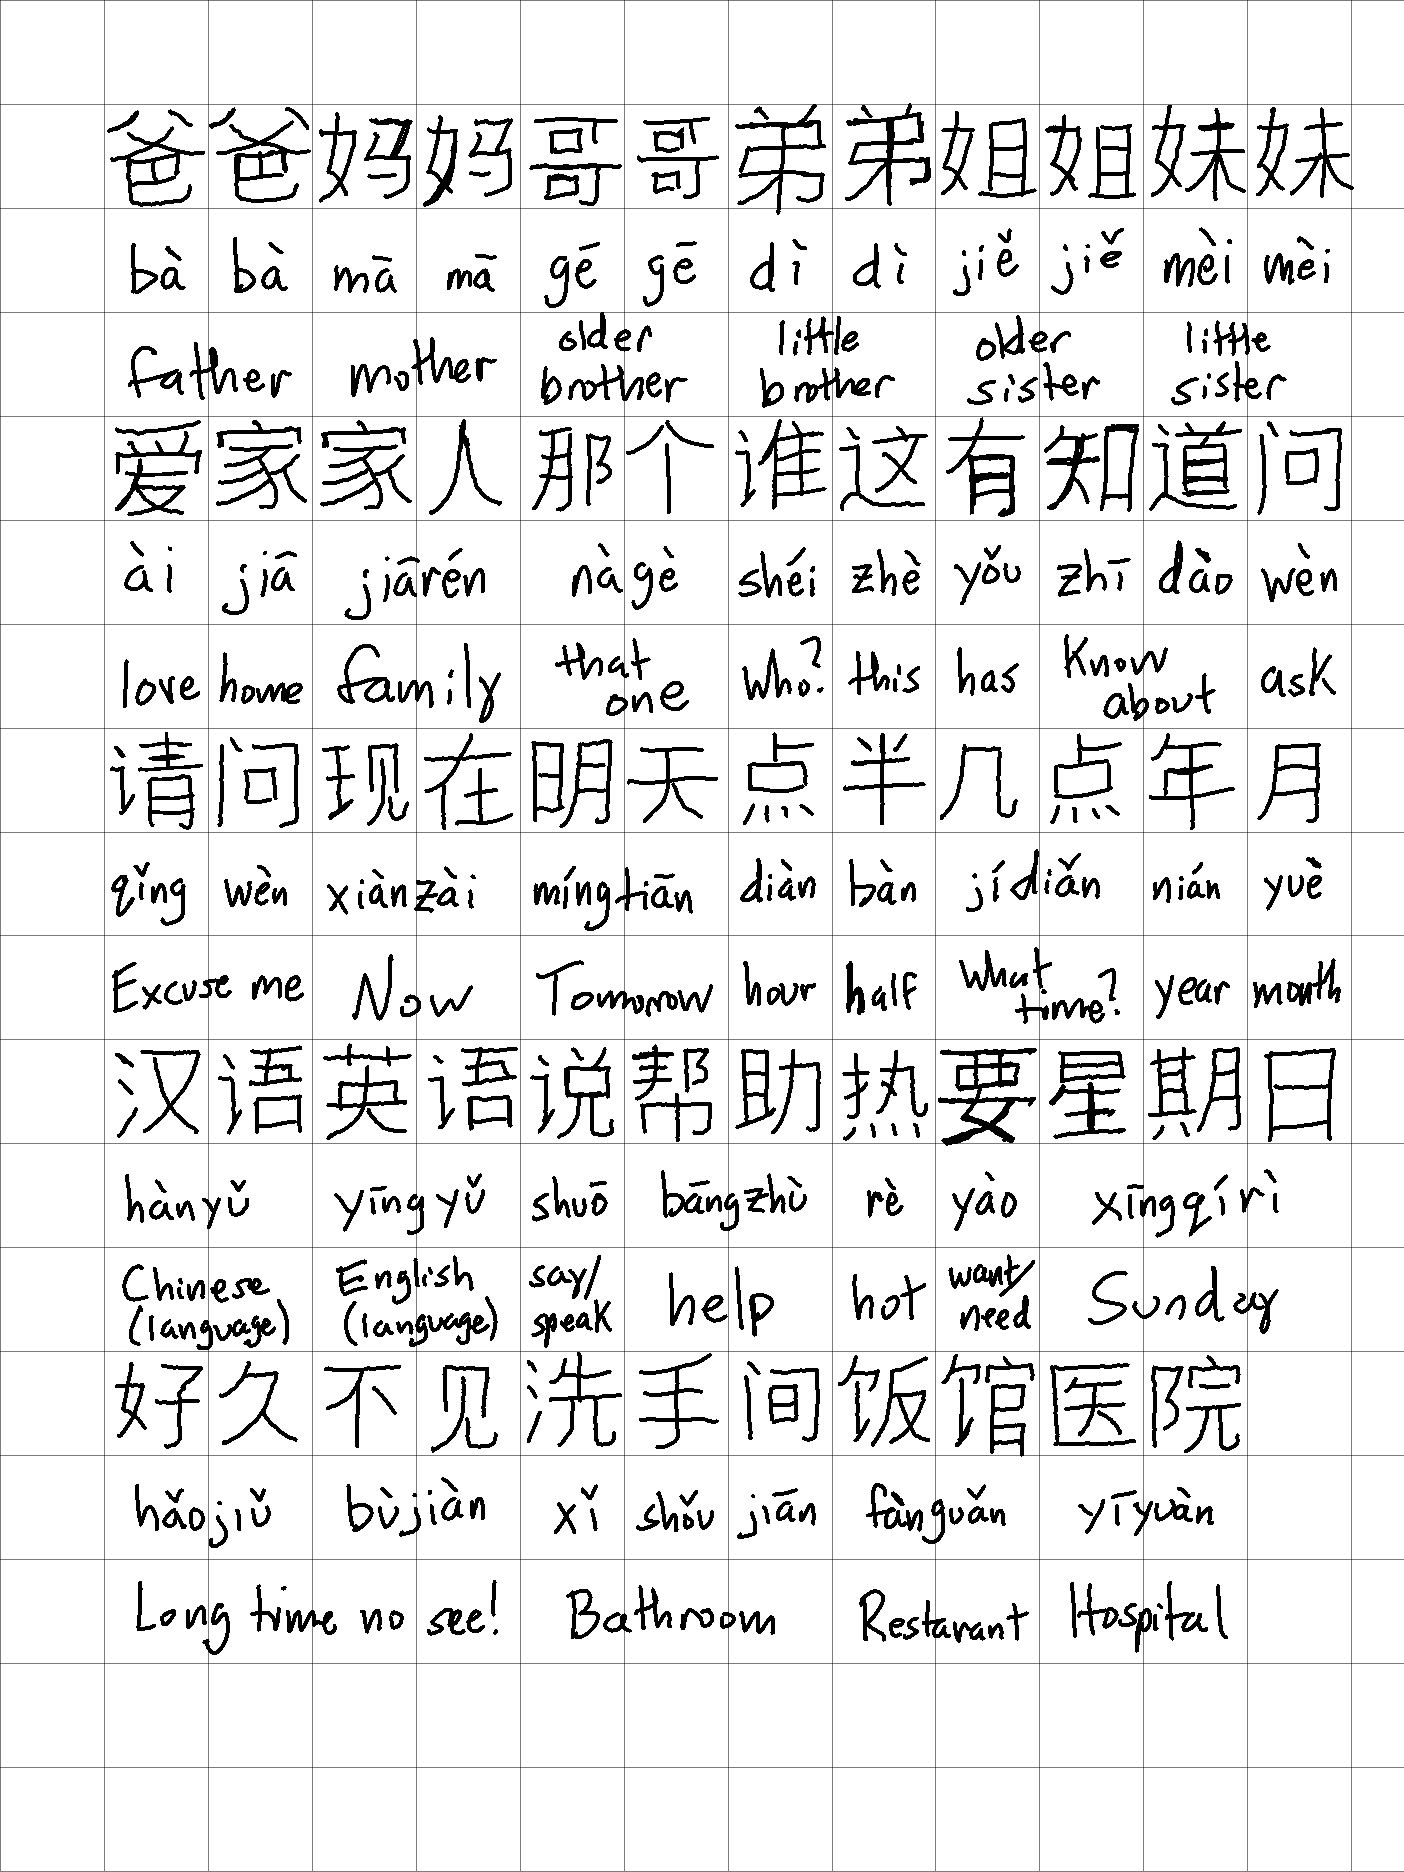 爸爸妈妈哥哥弟弟姐姐妹妹
bà bà mā mā gē gē dì dì jiě jiě mèi mèi
father mother older brother little brother older sister little sister
爱家家人那个谁这有知道问
ài jiā jiārén nà gè shéi zhè yǒu zhī dào wèn
love home family that one who? this has know about ask
请问现在明天点半几点年月
qǐng wèn xiànzài míngtiān diàn bàn jídiǎn nián yuè
Excuse me Now Tomorrow hour half what time? year month
汉语英语说帮助热要星期日
hànyǔ yīngyǔ shuō bāngzhù rè yào xīngqírì
Chinese (language) English (language) say/speak help hot want/need Sunday
好久不见洗手间饭馆医院
hǎojiǔ bùjiàn xǐ shǒu jiān fànguǎn yīyuàn
Long time no see! Bathroom Restarant Hospital